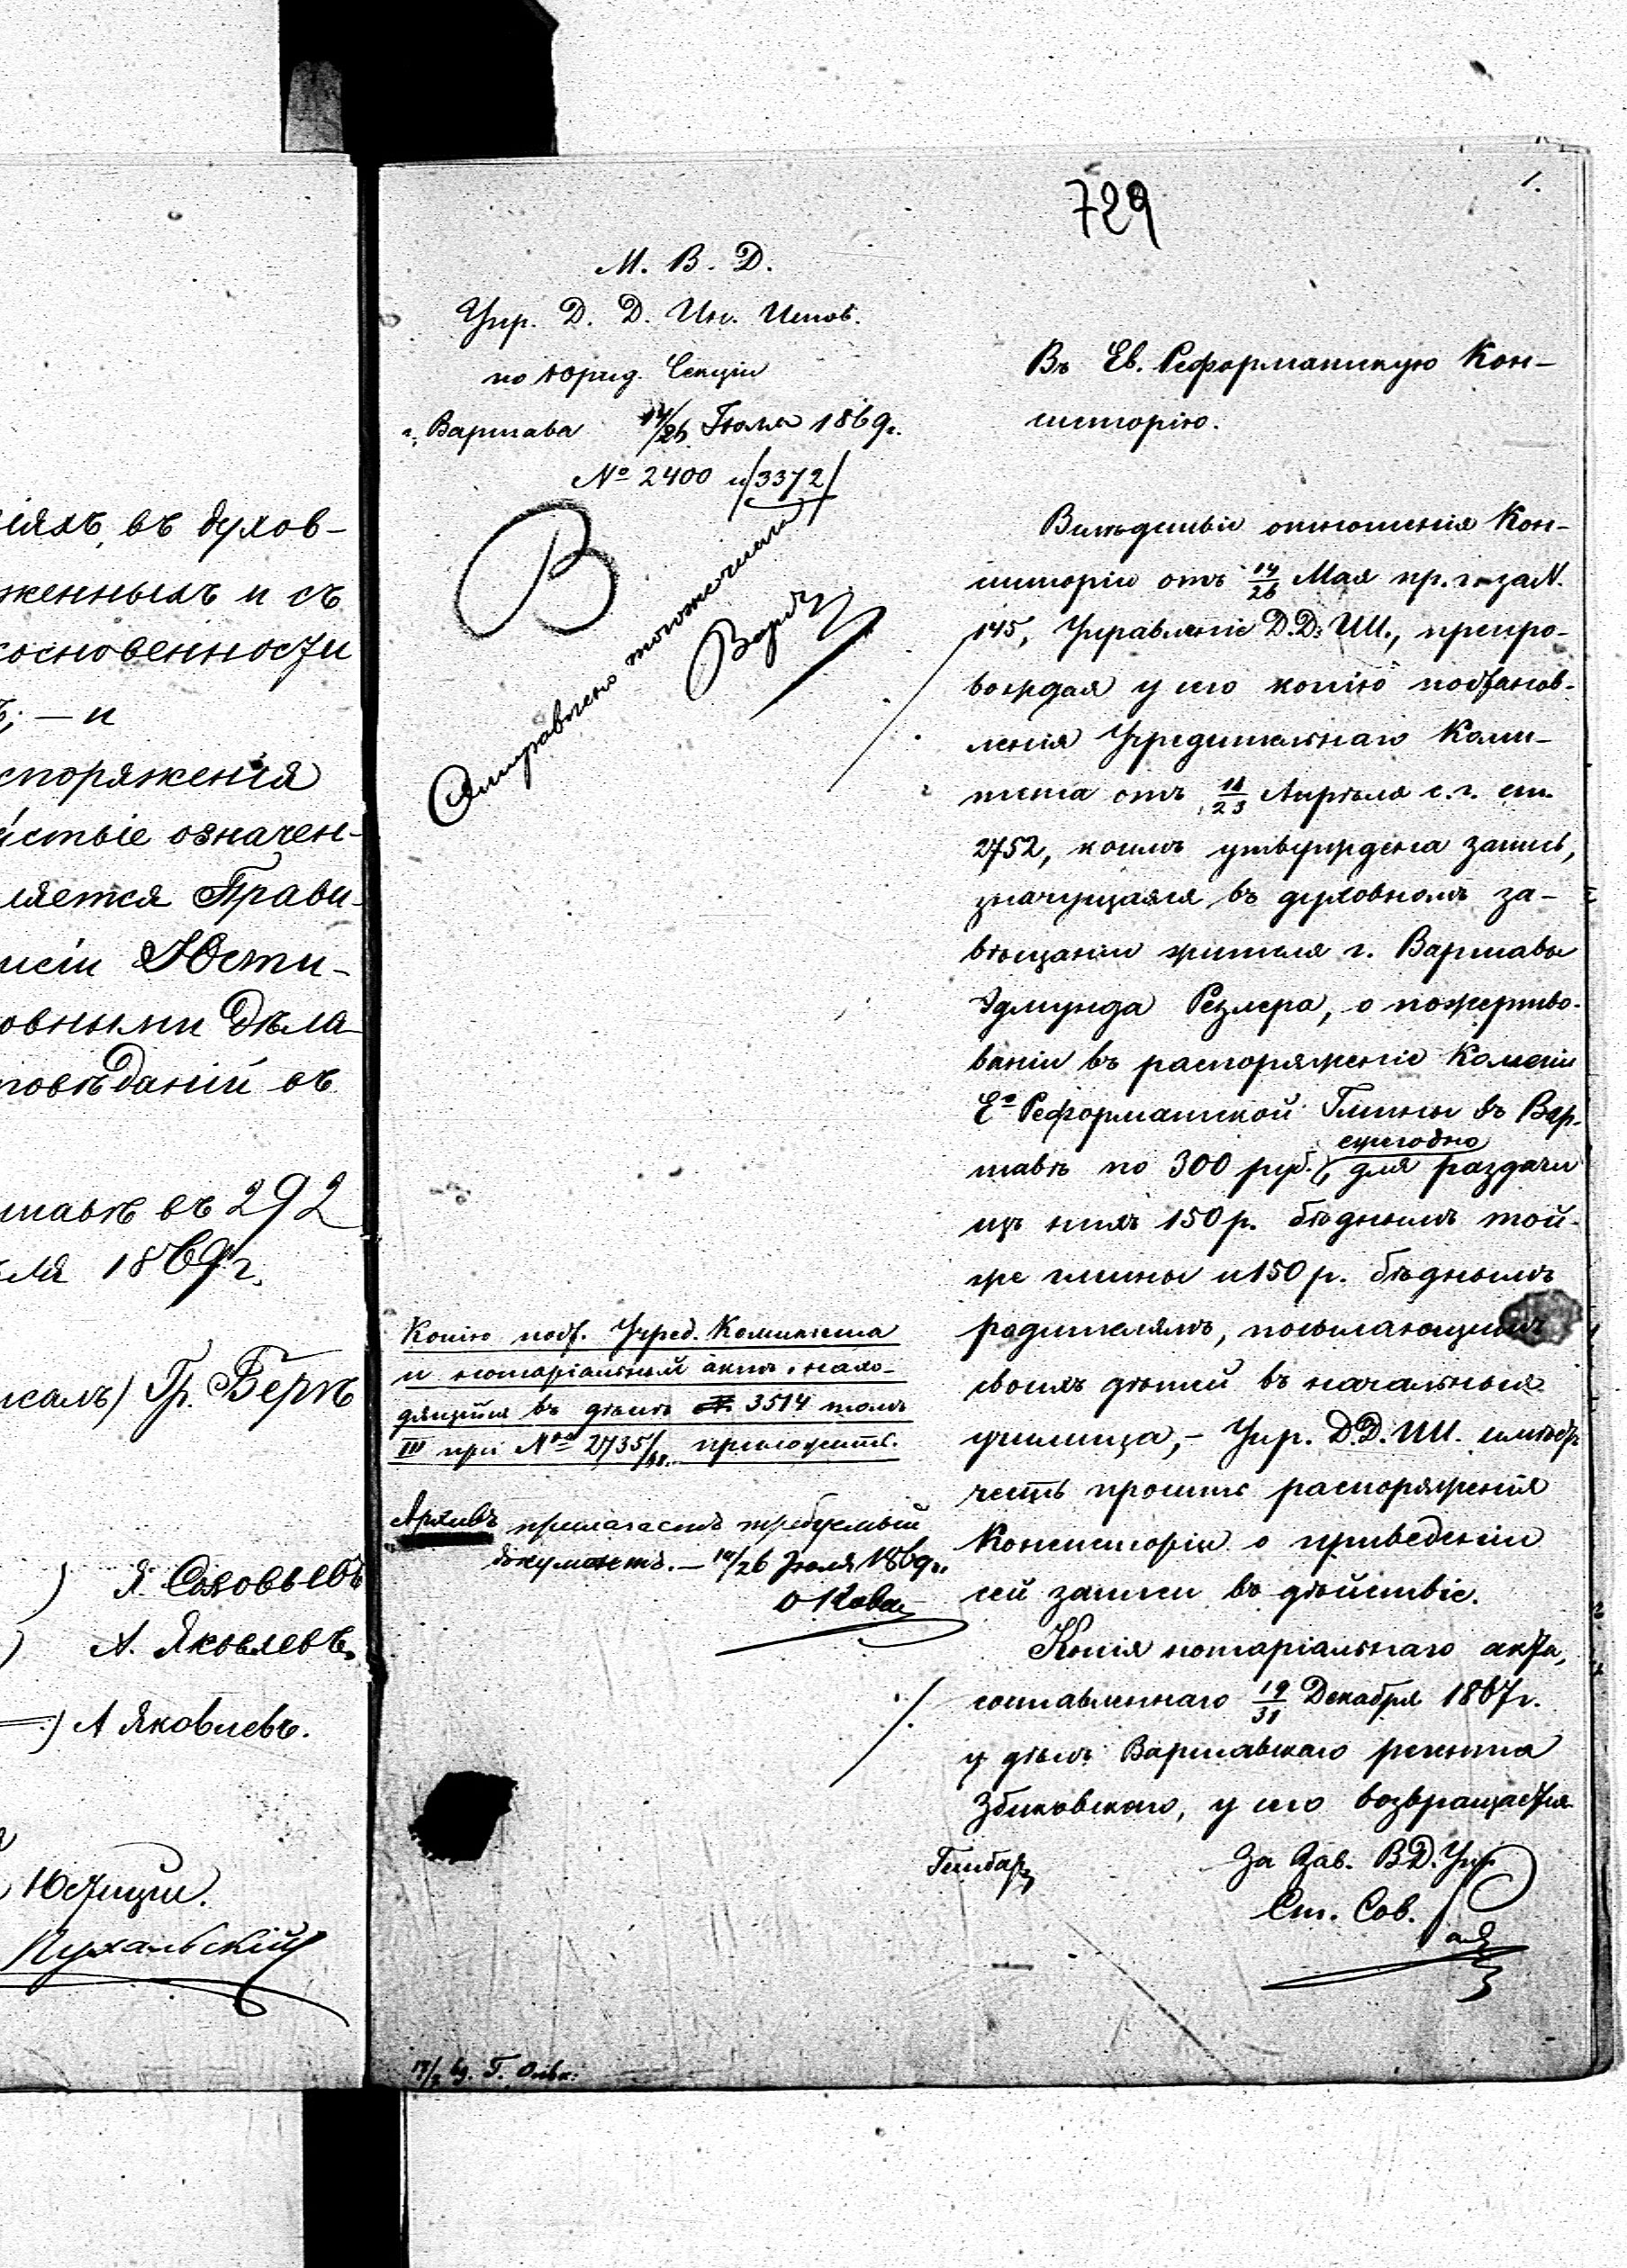 іяхъ, въ духов-
женныхъ и съ
косновенности
ъ; — и
споряженія
йствіе означен-
ляется Прави-
исіи Юсти-
овными Дѣла-
повѣданій въ
шавѣ въ 292
ля 1869 г.
исалъ) Гр. Бергъ
) Я. Соловьевъ
) А. Яковлевъ.
) А Яковлевъ.
Юстиціи.
Пухальскій
729
1.
М. В. Д.
Упр. Д. Д. Ин. Испов.
по юрид. Секціи
г. Варшава 14/26 Іюля 1869 г.
№ 2400 и/3372/
В
Въ Ев. Реформатскую Кон-
систорію.
Вслѣдствіе отношенія Кон-
систоріи отъ 14/26 Мая пр. г. за N.
145, Управленіе Д.Д. ИИ., препро-
вождая у сего копію постанов-
ленія Учредительнаго Коми-
тета отъ 11/23 Апрѣля с.г. ст.
2752, коимъ утверждена запись,
значущаяся въ духовномъ за-
вѣщаніи жителя г. Варшавы
Эдмунда Резлера, о пожертво-
ваніи въ распоряженіе Колегіи
Ев. Реформатской Гмины въ Вар-
шавѣ по 300 руб. ежегодно для раздачи
изъ нихъ 150 р. бѣднымъ той-
же гмины и 150 р. бѣднымъ
родителямъ, посылающимъ
своихъ дѣтей въ начальныя
училища, – Упр. Д.Д. ИИ. имѣетъ
честь просить распоряженія
Консисторіи о приведеніи
сей записи въ дѣйствіе.
Копія нотаріальнаго акта,
составленнаго 19/31 Декабря 1867 г.
у дѣлъ Варшавскаго регента
Збиковскаго, у сего возвращается
За Зав. В.Д. Упр.
Ст. Сов.
Копію пост. Учред. Комитета
и нотаріальный актъ, нахо-
дящійся въ дѣлѣ 3514 томъ
III при № 2735/ приложить.
Архивъ прилагаетъ требуемый
документъ. — 14/26 Іюля 1869 г.